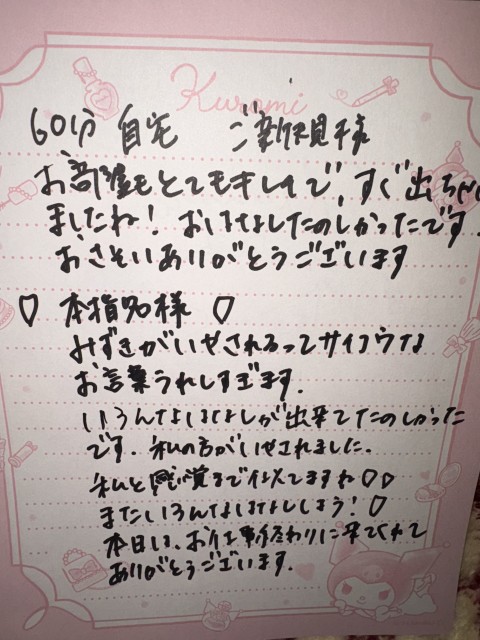 Kuromi
60分 自宅 ご新規様
お部屋もとてもキレイで、すぐ出ちゃい
ましたね！おはなしたのしかったです
おさそいありがとうございます
♡ 本指名様 ♡
みずきがいやされるってサイコウな
お言葉うれしすぎます.
いろんなはなしが出来てたのしかった
です. 私の方がいやされました.
私と感覚まで似てますね♡♡
またいろんなはなししましょう！♡
本日は、お仕事終わりに来てくれて
ありがとうございます.